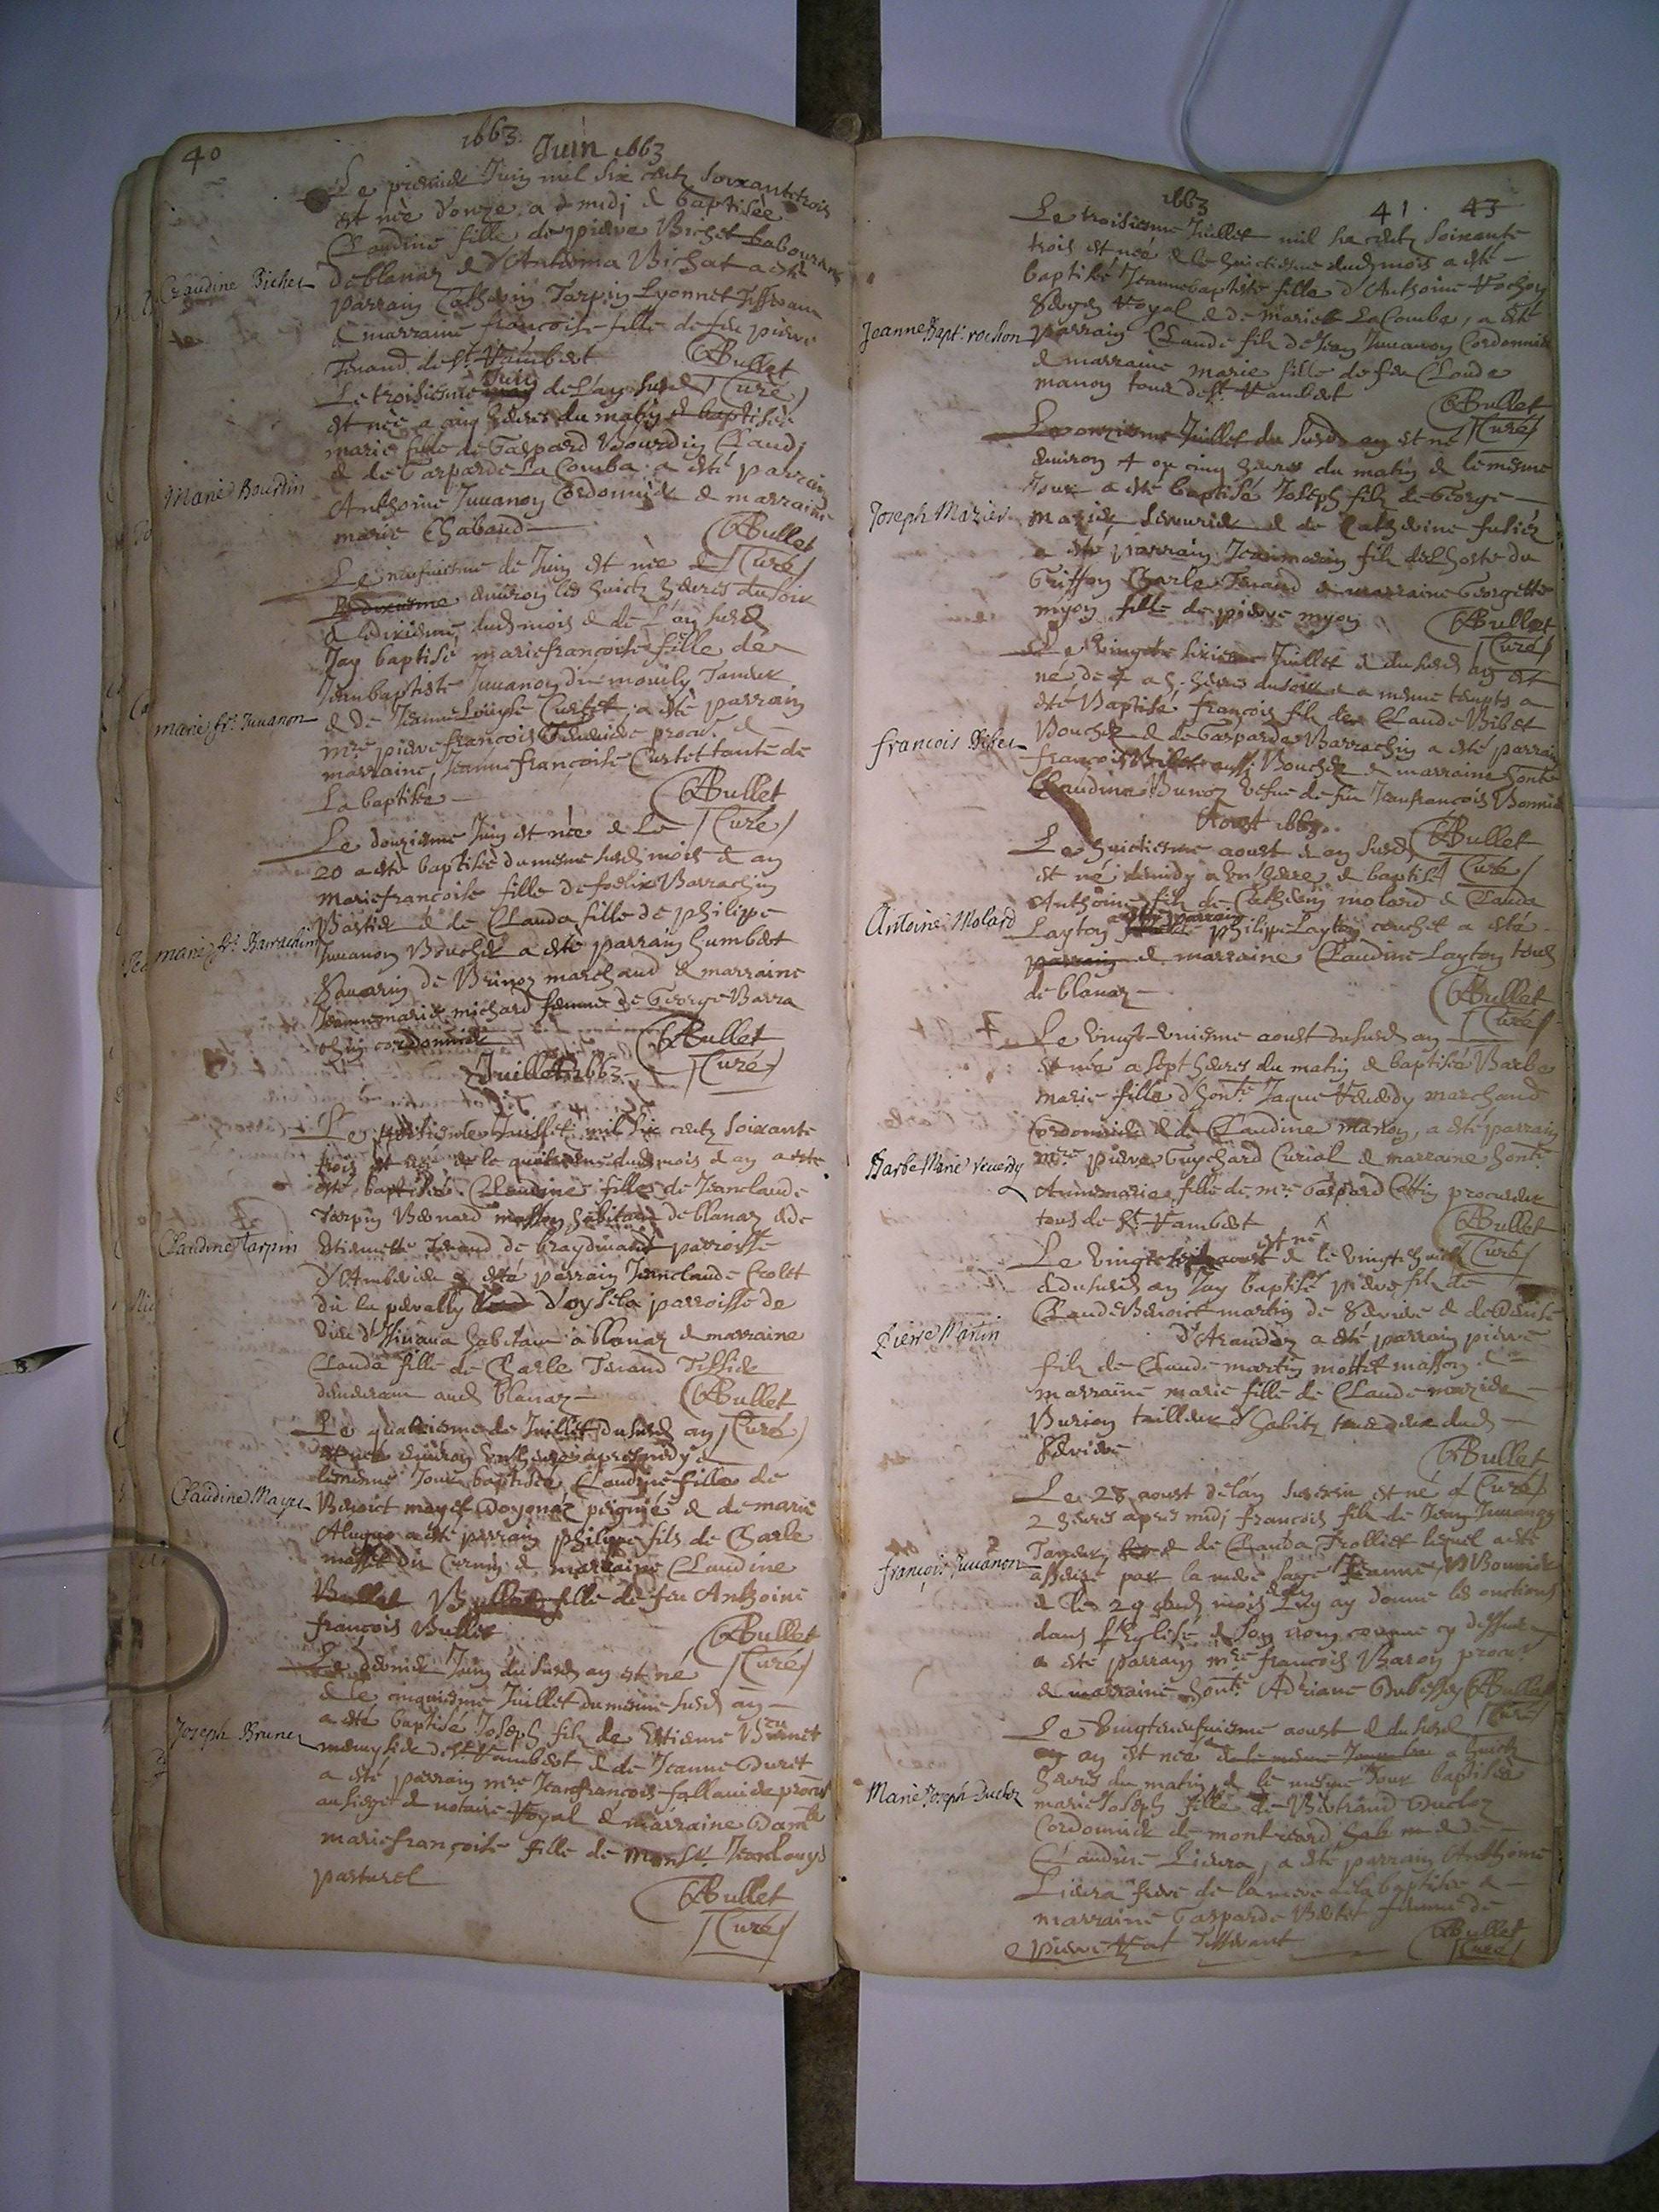 40
1663
Juin 1663
Le premier Juin mil six centz soixantetrois
est née d'onze a midj & baptisée
Claudine fille de pierre Bichet Laboureur
de blanaz & d'Anthoina Bichat a esté
parrain Cathelin Tarpin Lyonnet Tisserant
& marraine francoise fille de feu pierre
Tenand de St. Rambert
RBullet
Curé
Claudine Bichet
Le troisiesme Juin de l'an susd
est née a cinq heures du matin & baptisée
marie fille de Gaspard Bourdin Claudj
& de Gasparde La Comba a esté parrain
Anthoine Juuanon Cordonnier & marraine
marie Chabaud
RBullet
Curé
Marie Bourdin
Le neufuiesme de Juin est née
enuiron les huict heures du soir
& le dixiesme dud mois & de l'an susd
Jay baptisé mariefrancoise fille de
Jeanbaptiste Juuanon dit mouily Taneur
& de Jeanne Louyse Curtet a esté parrain
mre pierre francois proc. &
marraine Jeannefrançoise Curtet tante de
La baptisée
RBullet
Curé
marie fr. Juuanon
Le douziesme Juin est née & Le
20 a esté baptisée du mesme susd mois & an
Mariefrancoise fille de foelix Barrachin
Bastier & de Clauda fille de philippe
Juuanon Boucher a esté parrain humbert
Sauarin de Brinoz marchand & marraine
Jeannemarie michard femme de George Barra
chin cordonnier
RBullet
Curé
marie fr. Barrachin
Juillet 1663
Le Juillet mil six centz soixante
trois est née & le quatriesme dud mois & an a esté
esté baptisée Claudine fille de Jeanclaude
Tarpin Bernard masson habitant de blanaz & de
Estiennette Tenand de braydeuant parroisse
d'Amberieu a esté parrain Jeanclaude Crolet
dit la peually d'oysela parroisse de
habitant a blanaz & marraine
Clauda fille de Carle Tenand Tissier
demeurant aud blanaz
RBullet
Curé
Claudine Tarpin
Le quatriesme de Juillet du susd an
est née enuiron heures apres midy &
le mesme Jour baptisée Claudine fille de
Benoict mayet Doyonaz peignier & de marie
a esté parrain philippe fils de Carle
masset dit Cornin & marraine Claudine
fille de feu Anthoine
francois Bullet
RBullet
Curé
Claudine Mayet
Le dernier Juin du susd an est né
& le cinquiesme Juillet du mesme susd an
a esté baptisé Joseph filz de Estienne Brunet
menusier de St Rambert & de Jeanne Duret
a esté parrain mre Jeanfrancois fallauier procur
au siege & notaire Royal & marraine Damlle
mariefrançoise fille de Monsr. Jeanlouys
pasturel
RBullet
Curé
Joseph Brunet
1663
41 43
Le troisiesme Juillet mil six centz soixante
trois est née & le huictiesme dud mois a esté
baptisée Jeannebaptiste fille d'Anthoine Rochon
Sergen Royal & de marie LaCombe, a esté
parrain Claude filz de Jean Juuanon Cordonnier
& marraine marie fille de feu Claude
manon tous de St Rambert
RBullet
Curé
Jeanne Bapt. rochon
Le onziesme Juillet du susd an est né
enuiron 4 ou cinq heures du matin & le mesme
Jour a esté baptisé Joseph filz de George
Mazier Serrurier & de Catherine fusier
a esté parrain Jeanmarin filz de l'hoste du
Griffon Charle Tenand & marraine Georgette
myon fille de pierre myon
RBullet
Curé
Joseph Mazier
Le Vingte sixiesme Juillet & du susd an est
né de 4 a 5 heures du soir & a mesme temps a
esté Baptisé francois filz de Claude Bibet
Boucher & de Gasparde Barrachin a esté parrain
françois Bibet aussi Boucher & marraine honte
Claudine Bunoz vefue de feu Jeanfrancois Bonnier
francois Bibet
Aoust 1663
RBullet
Curé
Le huictiesme aoust & an susd
est né demidy a vn heure & baptisé
Anthoine filz de Cathelin molard & Clauda
Layton a esté parrain philippe Layton couchet a esté
parrain & marraine Claudine Layton tous
de blanaz
RBullet
Curé
Antoine Molard
Le vingt-vniesme aoust du susd an
est née a sept heures du matin & baptisée Barbe
marie fille d'honte Jaque Reuerdy marchand
Cordonnier & de Claudine manon, a esté parrain
mre pierre Guychard Curial & marraine honte
Annemarie fille de mre Gaspard Cottin procureur
tous de St Rambert
RBullet
Curé
Barbe Marie reuerdy
Le Vingte aoust est né & le vingtehuict
& du susd an Jay baptisé pierre filz de
Claude Benoict martin de Seruiere & de Denise
d'Arandaz a esté parrain pierre
filz de Claude martin mottet masson &
marraine marie fille de Claude mazier
Burion tailleur habitz tous deux dud
Seruiere
RBullet
Curé
Pierre Martin
Le 28 aoust de l'an susescrit est né
2 heures apres midj francois filz de Jean Juuanon
Taneur & de Clauda Trolliet lequel a esté
par la mere sage Jeanne Bonnier
& le 29 dud mois Luy ay donné les onctions
dans l'Eglise & son nom comme cy dessus
a esté parrain mre francois Baron procr
& marraine honte Adriane Dubessey
RBullet
Curé
françois Juuanon
Le vingtneufuiesme aoust & du susd
an est née a huict
heures du matin & le mesme Jour baptisée
marie Joseph fille de Bertrand Ducloz
Cordonnier de montreard hab &
Claudine Lieura, a esté parrain Anthoine
Lieura frere de la mere de la baptisée &
marraine Gasparde Bertet femme de
pierre Rat Tisserant
RBullet
Curé
Marie Joseph Ducloz